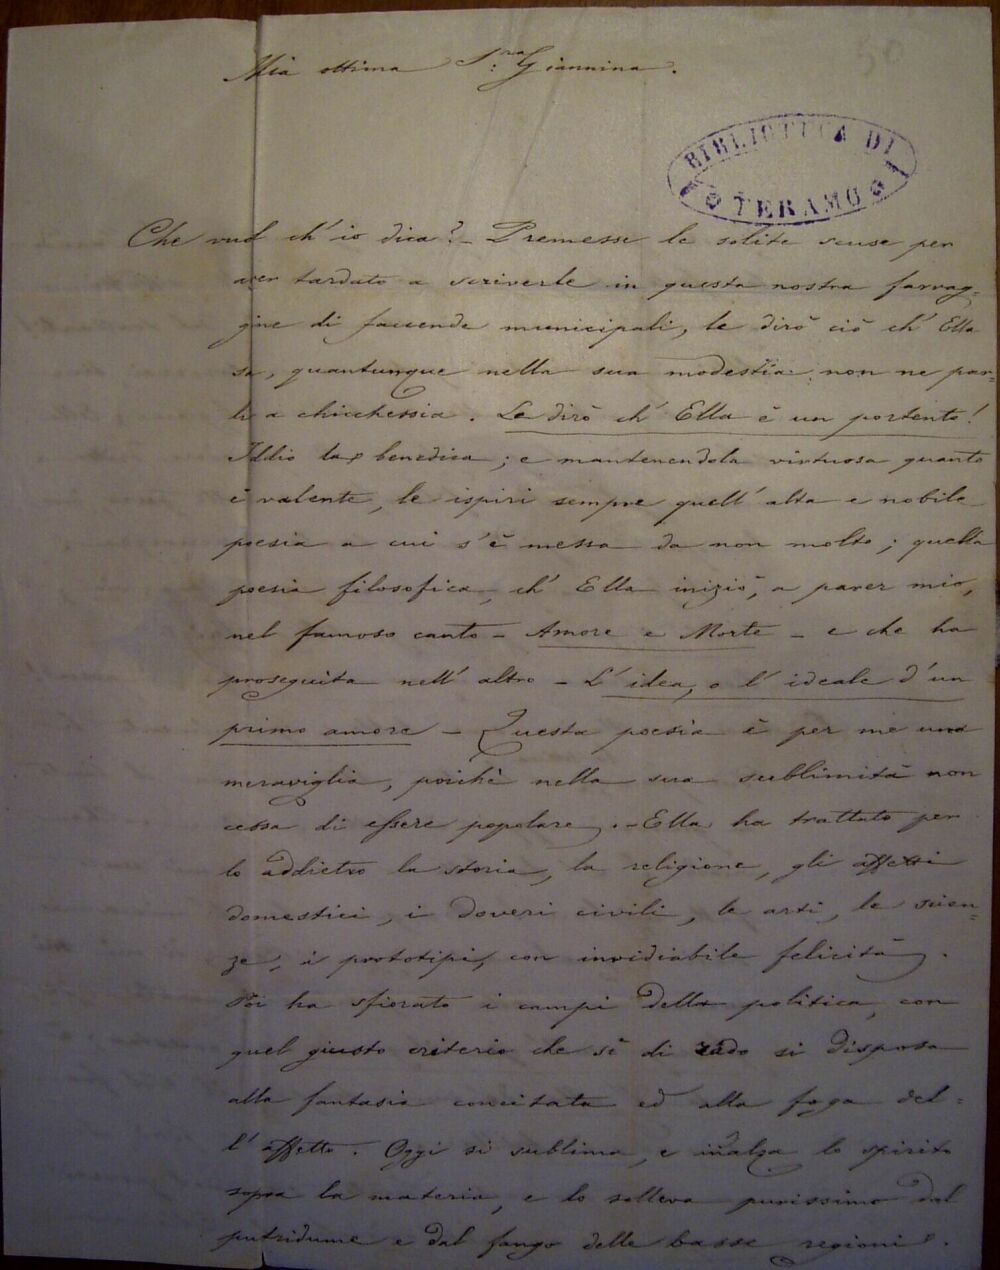 50
Mia ottima S.ra Giannina.
BIBLIOTECA DI
TERAMO
Che vuol ch' io dica? - Premesse le solite scuse per
aver tardato a scriverle in questa nostra farrag=
gine di faccende municipali, le dirò ciò ch' Ella
sa, quantunque nella sua modestia non ne par=
li a chicchessia. Le dirò ch' Ella è un portento!
Iddio la benedica; e mantenendola virtuosa quanto
è valente, le ispiri sempre quell' alta e nobile
poesia a cui s' è messa da non molto; quella
poesia filosofica, ch' Ella iniziò, a parer mio,
nel famoso canto - Amore e Morte - e che ha
proseguita nell' altro - L' idea, o l' ideale d' un
primo amore - Questa poesia è per me una
meraviglia, poichè nella sua sublimità non
cessa di essere popolare. - Ella ha trattato per
lo addietro la storia, la religione, gli affetti
domestici, i doveri civili, le arti, le scien=
ze, i prototipi, con invidiabile felicità.
Poi ha sfiorato i campi della politica, con
quel giusto criterio che sì di rado si disposa
alla fantasia concitata ed alla foga del=
l' affetto. Oggi si sublima, e inalza lo spirito
sopra la materia, e lo solleva purissimo dal
putridume e dal fango delle basse regioni.